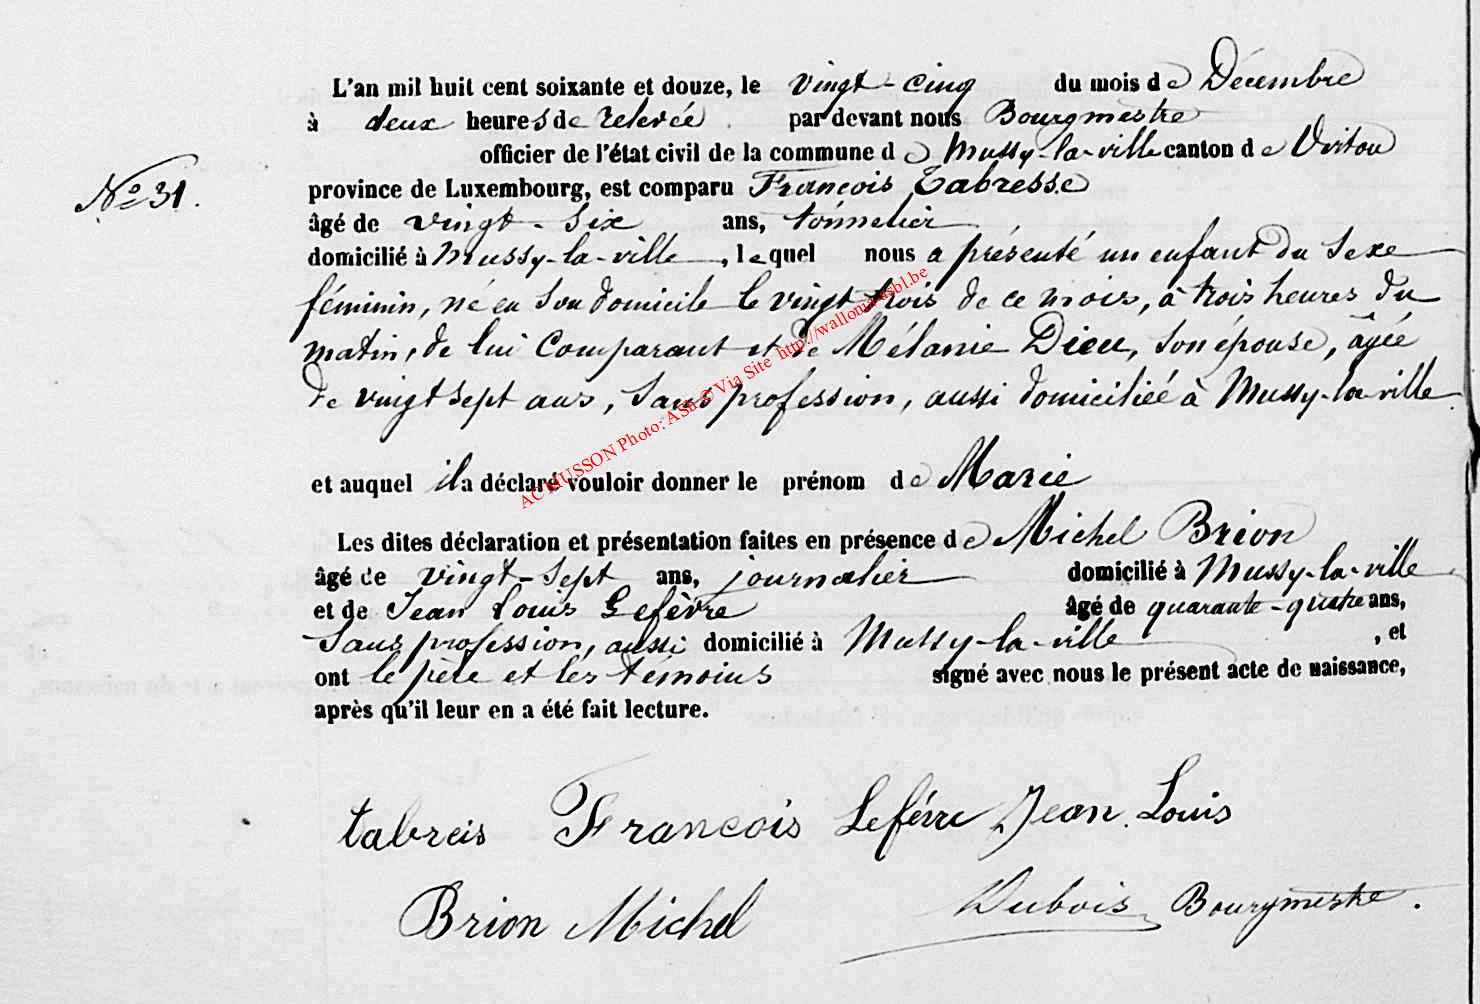 L'an mil huit cent soixante et douze, le vingt-cinq du mois de Décembre
à deux heures de relevée par devant nous Bourgmestre
officier de l'état civil de la commune de Mussy-la-ville canton de Virton
N° 31.
province de Luxembourg, est comparu François Tabresse
âgé de vingt-six ans, tonnelier
domicilié à Mussy-la-ville, lequel nous a présenté un enfant du sexe
féminin, né en son domicile le vingt trois de ce mois, à trois heures du
matin, de lui Comparant et de Mélanie Dieu, son épouse, âgée
de vingt sept ans, sans profession, aussi domiciliée à Mussy-la-ville
ACMUSSON Photo: ASa © Via Site http://wallonia-asbl.be
et auquel il a déclaré vouloir donner le prénom de Marie
Les dites déclaration et présentation faites en présence de Michel Brion
âgé de vingt-sept ans, journalier domicilié à Mussy-la-ville
et de Jean Louis Lefèvre âgé de quarante-quatre ans,
Sans profession, aussi domicilié à Mussy-la-ville, et
ont le père et les témoins signé avec nous le présent acte de naissance,
après qu'il leur en a été fait lecture.
tabreis François Lefévre Jean Louis
Brion Michel Dubois Bourgmestre.